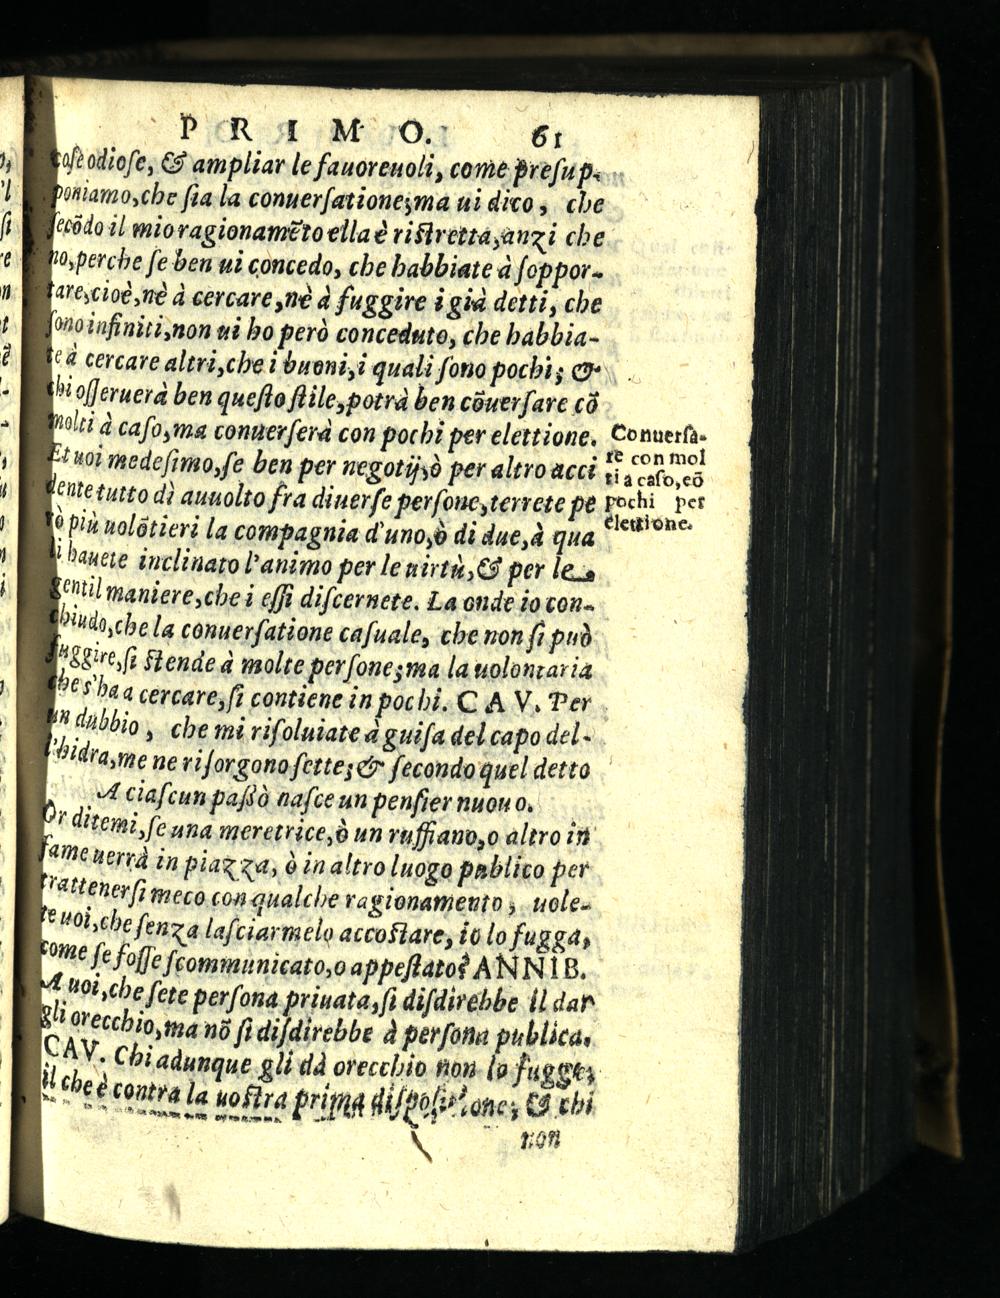 PRIMO. 61
cose odiose, & ampliar le fauoreuoli, come presup-
poniamo, che sia la conuersatione; ma ui dico, che
secõdo il mio ragionamẽto ella è ristretta, anzi che
no, perche se ben ui concedo, che habbiate à soppor-
tare, cioè, nè à cercare, nè à fuggire i già detti, che
sono infiniti, non ui ho però conceduto, che habbia-
te à cercare altri, che i buoni, i quali sono pochi; &
chi osseruerà ben questo stile, potrà ben cõuersare cõ
molti à caso, ma conuerserà con pochi per elettione.
Et uoi medesimo, se ben per negotij, ò per altro acci
dente tutto dì auuolto fra diuerse persone, terrete pe
rò più uolõtieri la compagnia d'uno, ò di due, à qua
li hauete inclinato l'animo per le uirtù, & per le
gentil maniere, che i essi discernete. La onde io con-
chiudo, che la conuersatione casuale, che non si può
fuggire, si stende à molte persone; ma la uolontaria
che s'ha a cercare, si contiene in pochi. CAV. Per
un dubbio, che mi risoluiate à guisa del capo del-
l'hidra, me ne risorgono sette; & secondo quel detto
A ciascun passò nasce un pensier nuouo.
Or ditemi, se una meretrice, ò un ruffiano, o altro in
fame uerrà in piazza, ò in altro luogo publico per
trattenersi meco con qualche ragionamento, uole-
te uoi, che senza lasciarmelo accostare, io lo fugga,
come se fosse scommunicato, o appestato? ANNIB.
A uoi, che sete persona priuata, si disdirebbe il dar
gli orecchio, ma nõ si disdirebbe à persona publica.
CAV. Chi adunque gli dà orecchio non lo fugge;
il che è contra la uostra prima dispositione; & chi
non
Conuersa-
re con mol
ti a caso, cõ
pochi per
elettione.